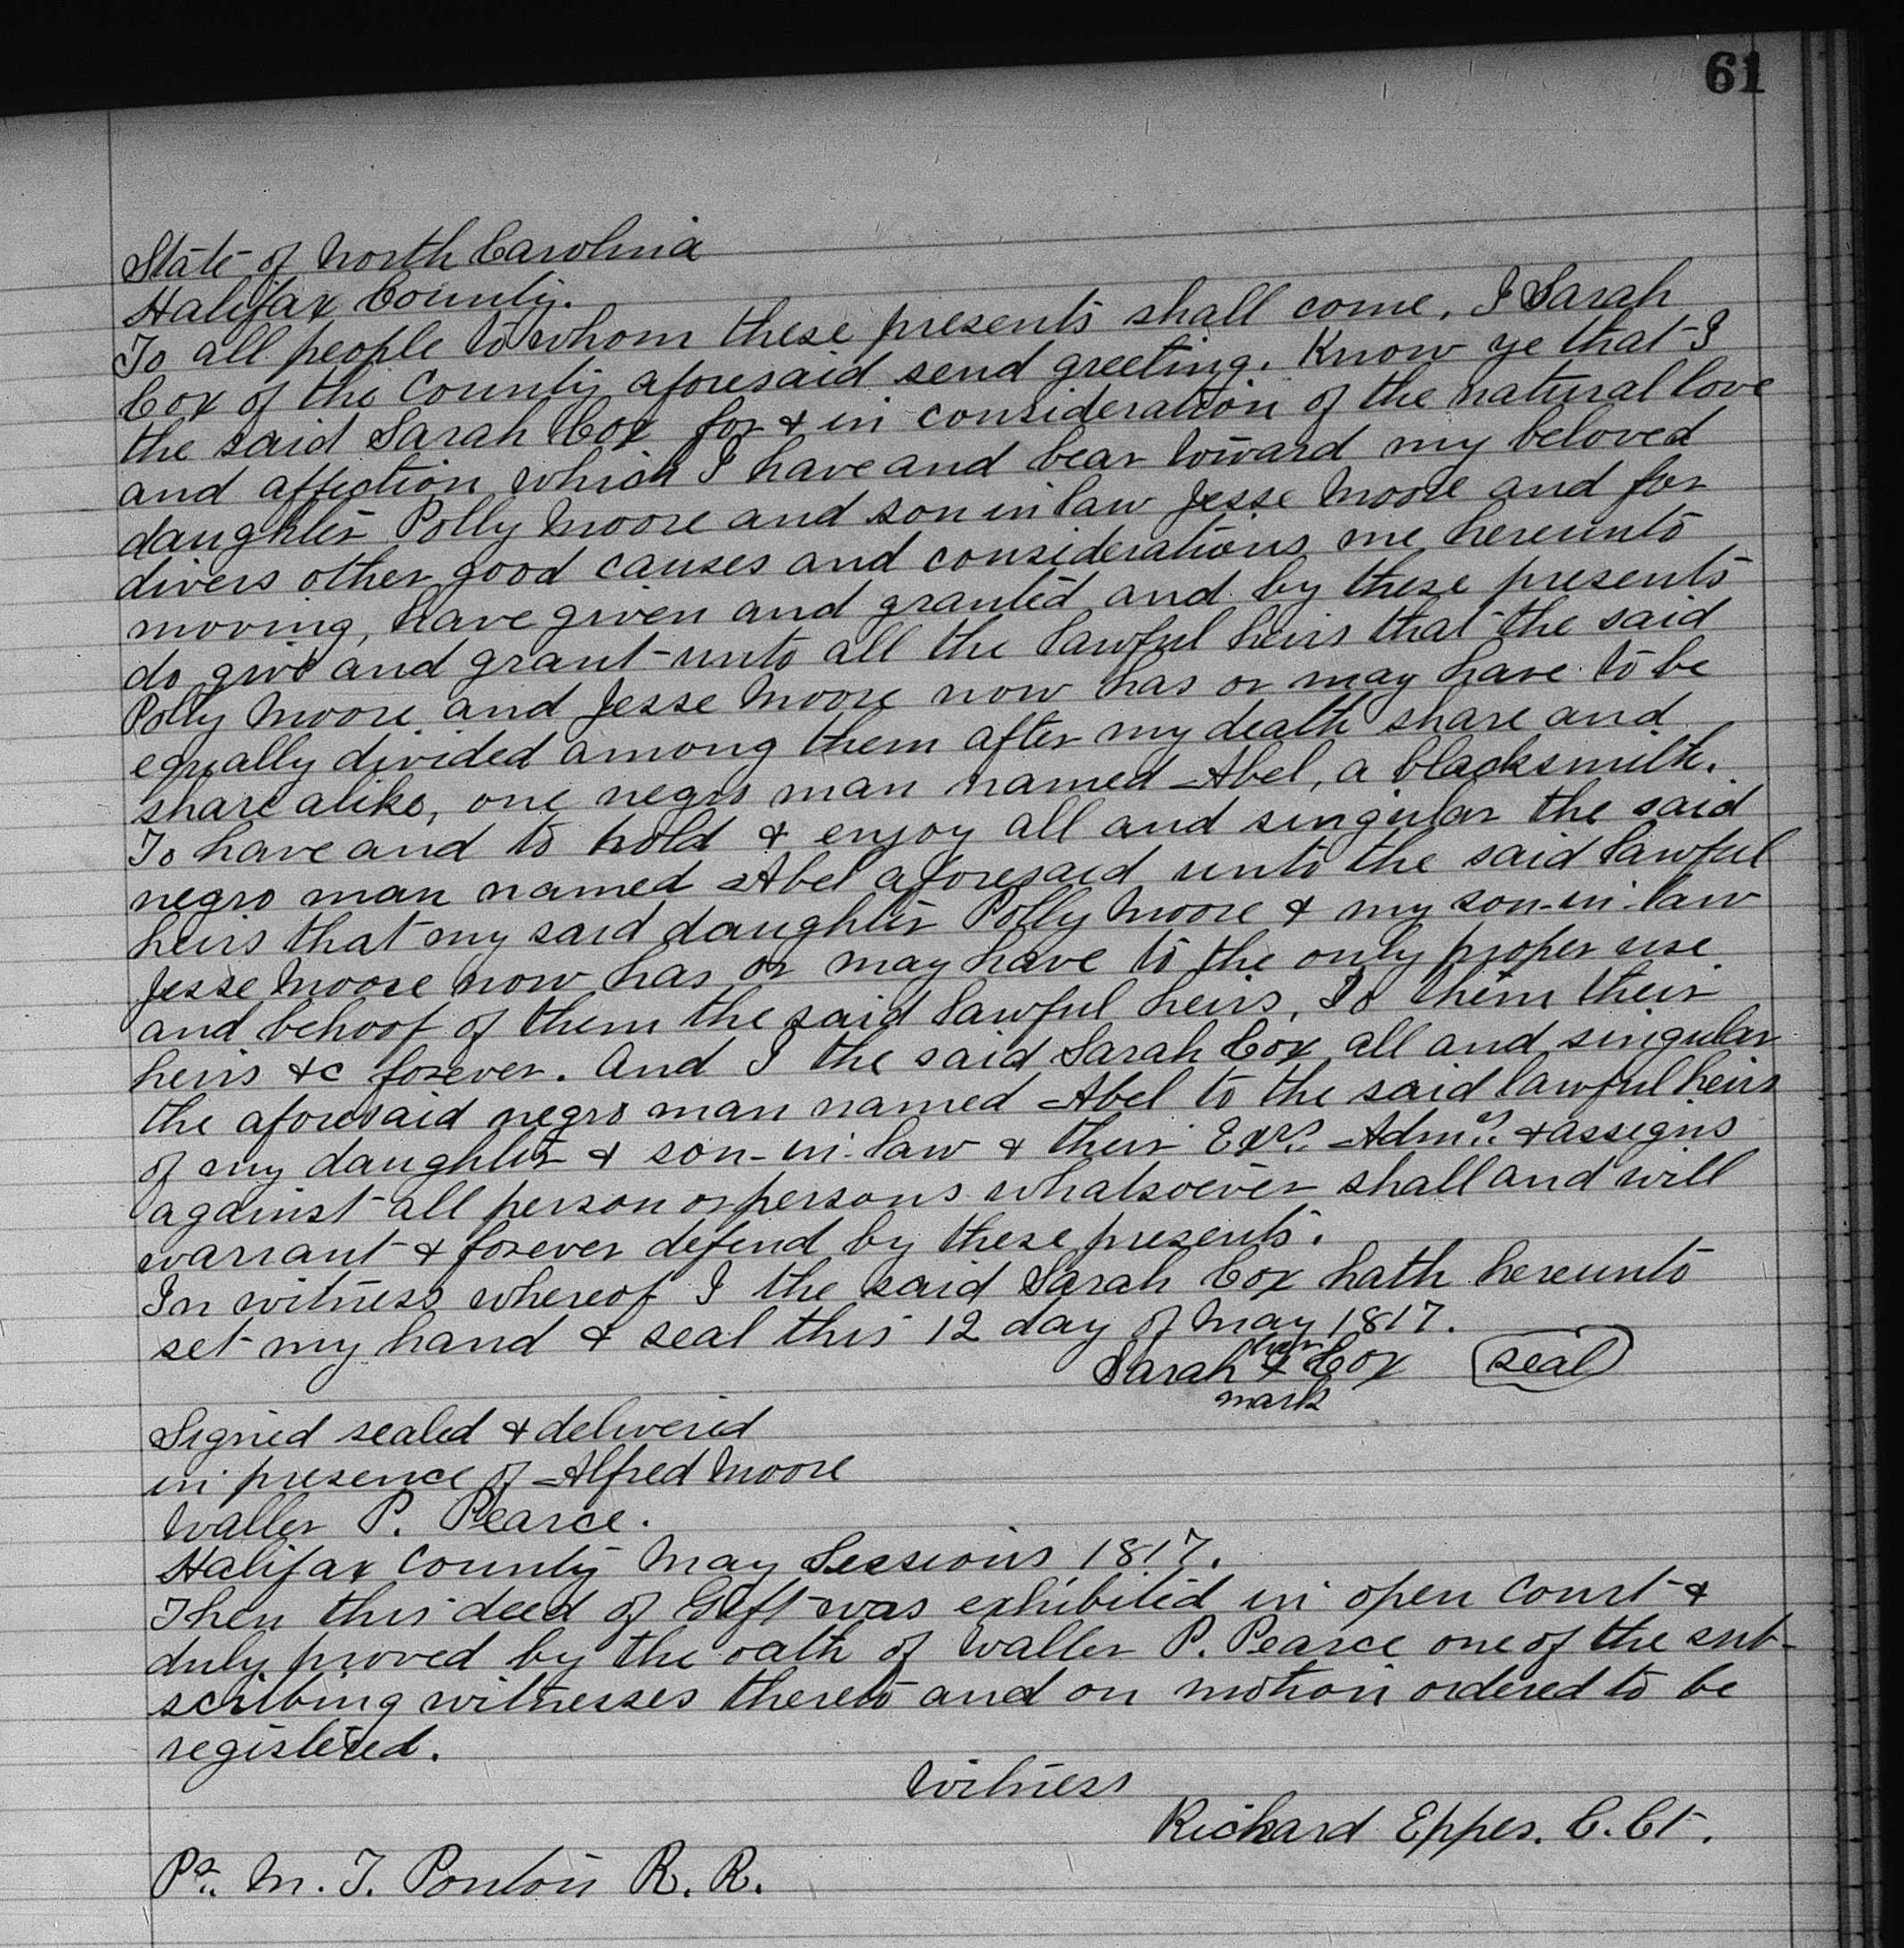 61
State of North Carolina
Halifax County.
To all people to whom these presents shall come, I Sarah
Cox of the County aforesaid send greeting. Know ye that I
the said Sarah Cox for & in consideration of the natural love
and affection which I have and bear toward my beloved
daughter Polly Moore and son in law Jesse Moore and for
divers other good causes and considerations me hereunto
moving, have given and granted and by these presents
do give and grant unto all the lawful heirs that the said
Polly Moore and Jesse Moore now has or may have to be
equally divided among them after my death share and
share alike, one negro man named Abel, a blacksmith.
To have and to hold & enjoy all and singular the said
negro man named Abel aforesaid unto the said lawful
heirs that my said daughter Polly Moore & my son-in-law
Jesse Moore now has or may have to the only proper use
and behoof of them the said lawful heirs, To them their
heirs &c forever. And I the said Sarah Cox all and singular
the aforesaid negro man named Abel to the said lawful heirs
of my daughter & son-in-law & their Exrs. Admrs. & assigns
against all person or persons whatsoever shall and will
warrant & forever defend by these presents.
In witness whereof I the said Sarah Cox hath hereunto
set my hand & seal this 12 day of May 1817.
her
Sarah x Cox seal
mark
Signed sealed & delivered
in presence of Alfred Moore
Waller P. Pearce.
Halifax County May Sessions 1817.
Then this deed of Gift was exhibited in open Court &
duly proved by the oath of Waller P. Pearce one of the sub-
scribing witnesses thereto and on motion ordered to be
registered.
Witness
Richard Eppes. C. Ct.
Pr. M. T. Ponton R. R.